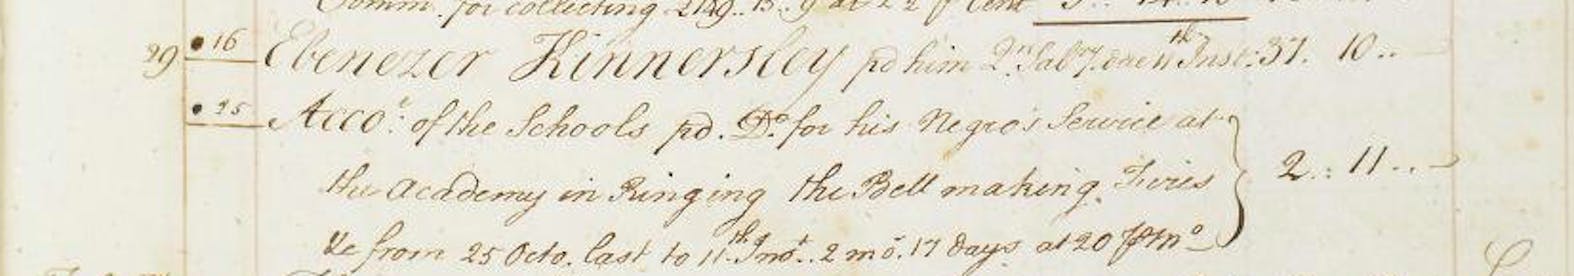 Comm. for collecting 2149.. 15.. 9 at 2½ ⅌ Cent
29 16 Ebenezer Kinnersley pd him Qr. Salry. due 11th Inst: 37. 10..
25 Acco.t of the Schools pd. Do. for his Negro's Service at
the Academy in Ringing the Bell making Fires 2.. 11..
&c from 25 Octo. last to 11th Inst. 2 mo. 17 days at 20/ ⅌ Mo